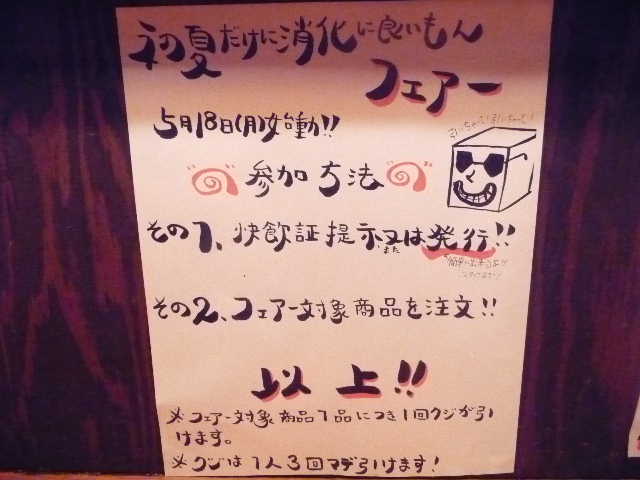 初夏だけに消化に良いもん
フェアー
5月18日(月)始動!!
参加方法
その1、快飲証提示又は発行!!
また
その2、フェアー対象商品を注文!!
以上!!
※フェアー対象商品1品につき1回クジが引
けます。
※クジは1人3回マデ引けます!